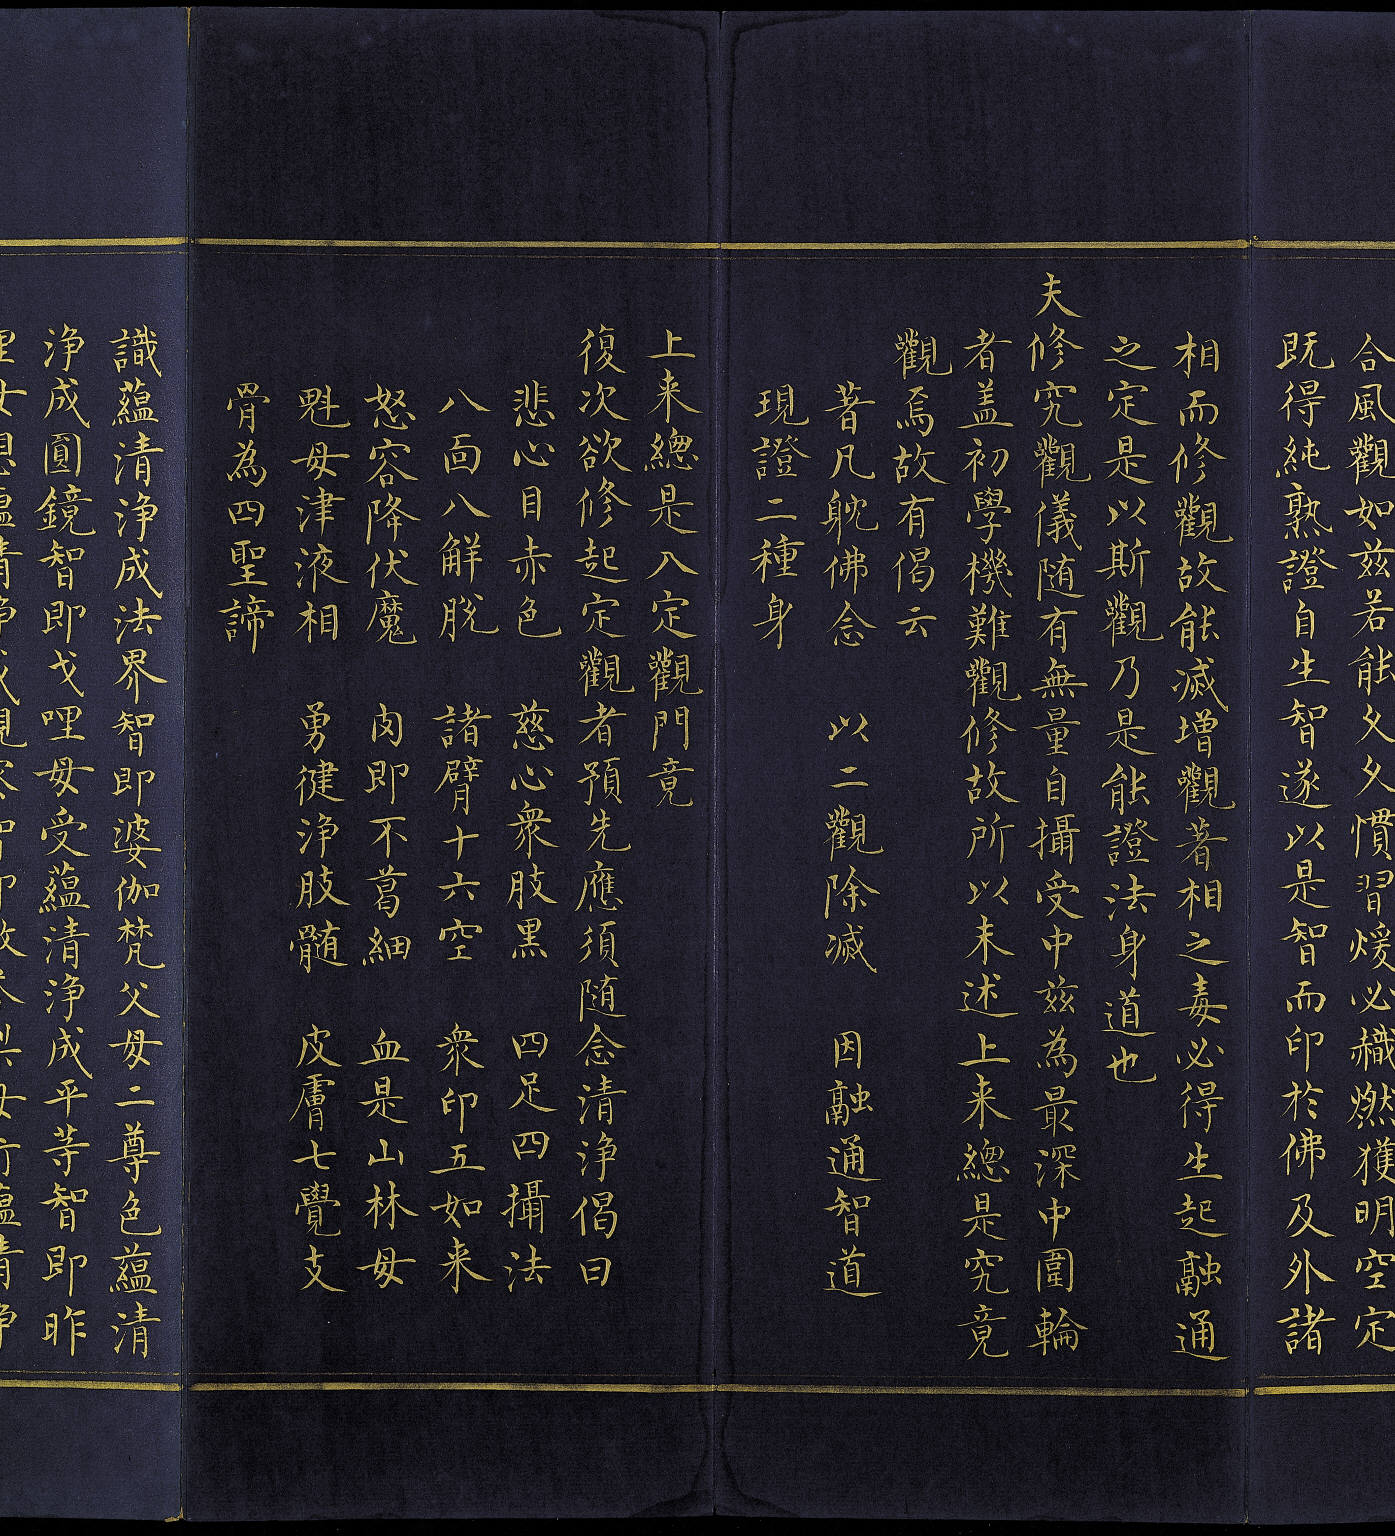 合風觀如茲若能久久慣習煖必熾燃獲明空定
既得純熟證自生智遂以是智而印於佛及外諸
相而修觀故能滅增觀著相之毒必得生起融通
之定是以斯觀乃是能證法身道也
夫修究觀儀随有無量自攝受中茲為最深中圍輪
者盖初學機難觀修故所以未述上来總是究竟
觀焉故有偈云
著凡躭佛念　以二觀除滅　因融通智道
現證二種身
上来總是八定觀門竟
復次欲修起定觀者預先應須随念清淨偈曰
悲心目赤色　慈心衆肢黑　四足四攝法
八面八解脫　諸臂十六空　衆印五如来
怒容降伏魔　肉即不葛細　血是山林母
魁母津液相　勇健淨肢髄　皮膚七覺支
骨為四聖諦
識蘊清淨成法界智即婆伽梵父母二尊色蘊清
淨成圓鏡智即戈哩母受蘊清淨成平等智即昨